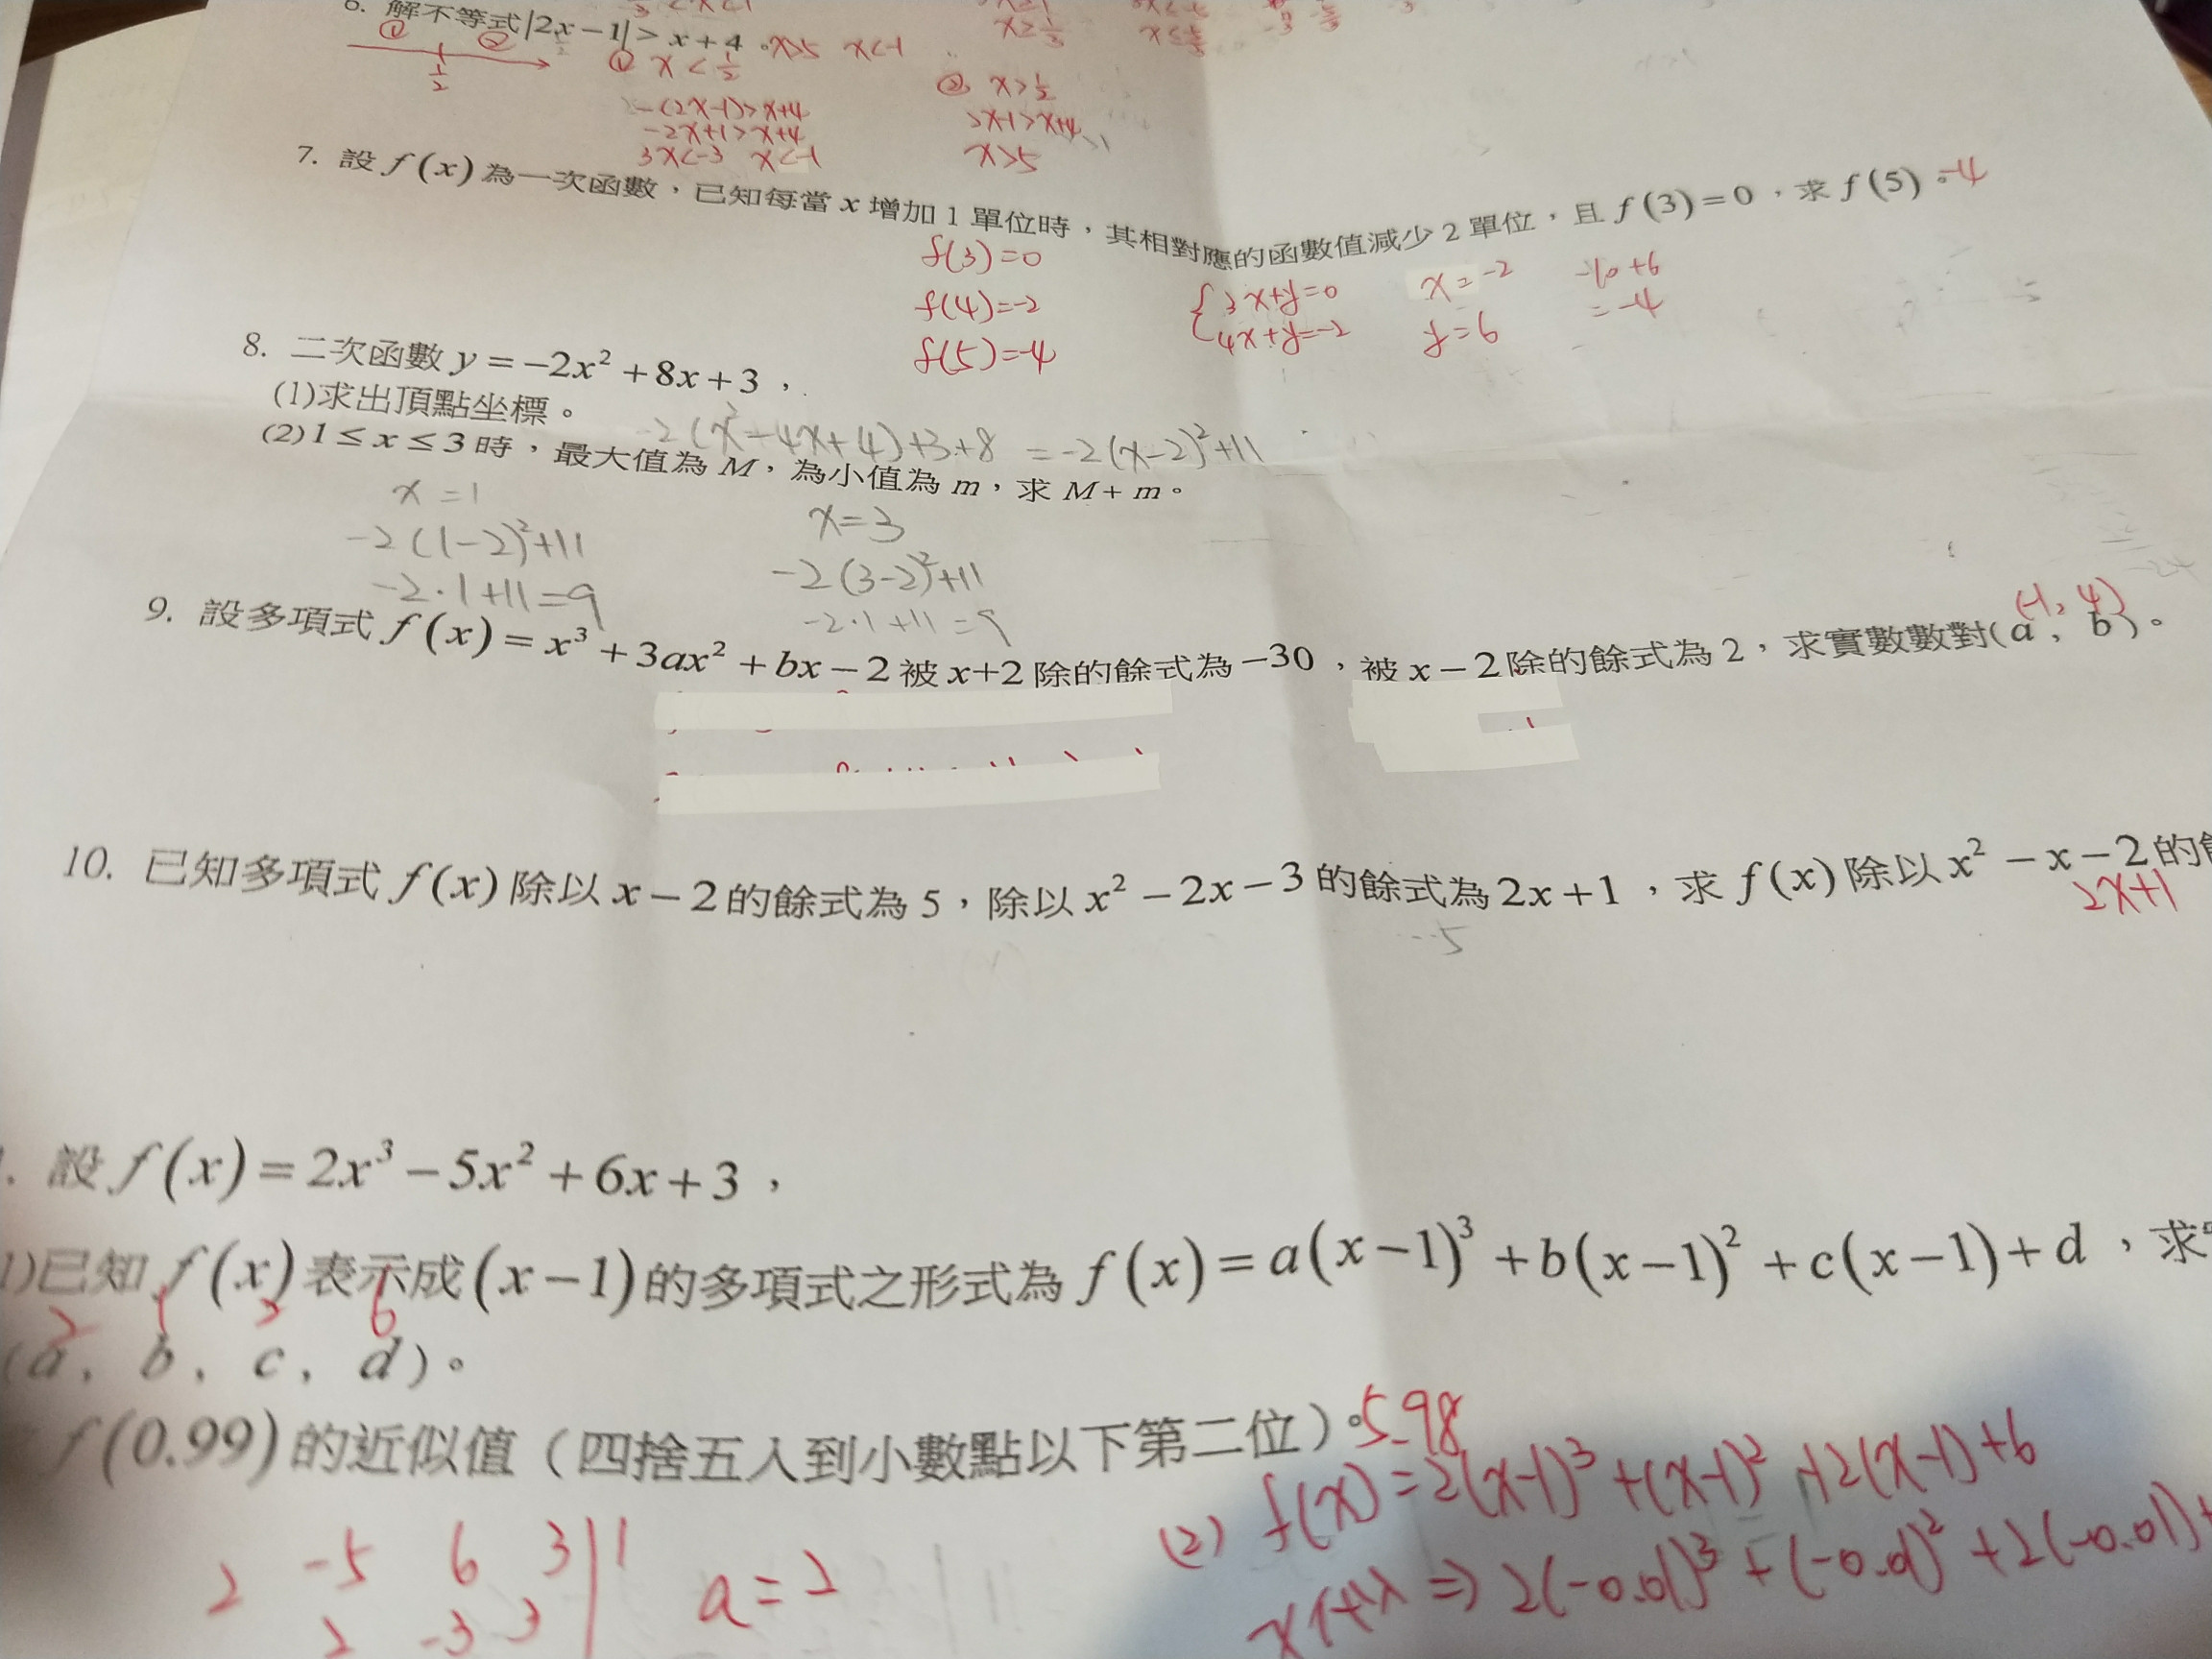 6. 解不等式|2x-1| > x+4。x>5 x<-1
① ②
1/2
① x < 1/2
② x > 1/2
-(2x-1)>x+4
-2x+1>x+4
3x<-3 x<-1
2x-1>x+4
x>5
7. 設 f(x) 為一次函數，已知每當 x 增加 1 單位時，其相對應的函數值減少 2 單位，且 f(3)=0，求 f(5)。-4
f(3)=0
f(4)=-2
f(5)=-4
{3x+y=0
4x+y=-2
x=-2
y=6
-10+6
=-4
8. 二次函數 y=-2x²+8x+3，
(1)求出頂點坐標。
-2(x²-4x+4)+3+8 =-2(x-2)²+11
(2)1≤x≤3時，最大值為 M，為小值為 m，求 M+m。
x=1
-2(1-2)²+11
-2·1+11=9
x=3
-2(3-2)²+11
-2·1+11=9
(-1, 4)
9. 設多項式 f(x)=x³+3ax²+bx-2 被 x+2 除的餘式為 -30，被 x-2 除的餘式為 2，求實數數對(a, b)。
10. 已知多項式 f(x) 除以 x-2 的餘式為 5，除以 x²-2x-3 的餘式為 2x+1，求 f(x) 除以 x²-x-2 的
2x+1
-5
. 設 f(x)=2x³-5x²+6x+3，
1)已知 f(x) 表示成 (x-1) 的多項式之形式為 f(x)=a(x-1)³+b(x-1)²+c(x-1)+d，求
2 1 2 6
(a, b, c, d)。
f(0.99) 的近似值（四捨五入到小數點以下第二位）。5.98
(2) f(x)=2(x-1)³+(x-1)²+2(x-1)+6
2(-0.01)³+(-0.01)²+2(-0.01)+
2 -5 6 3|1
2 -3 3
a=2